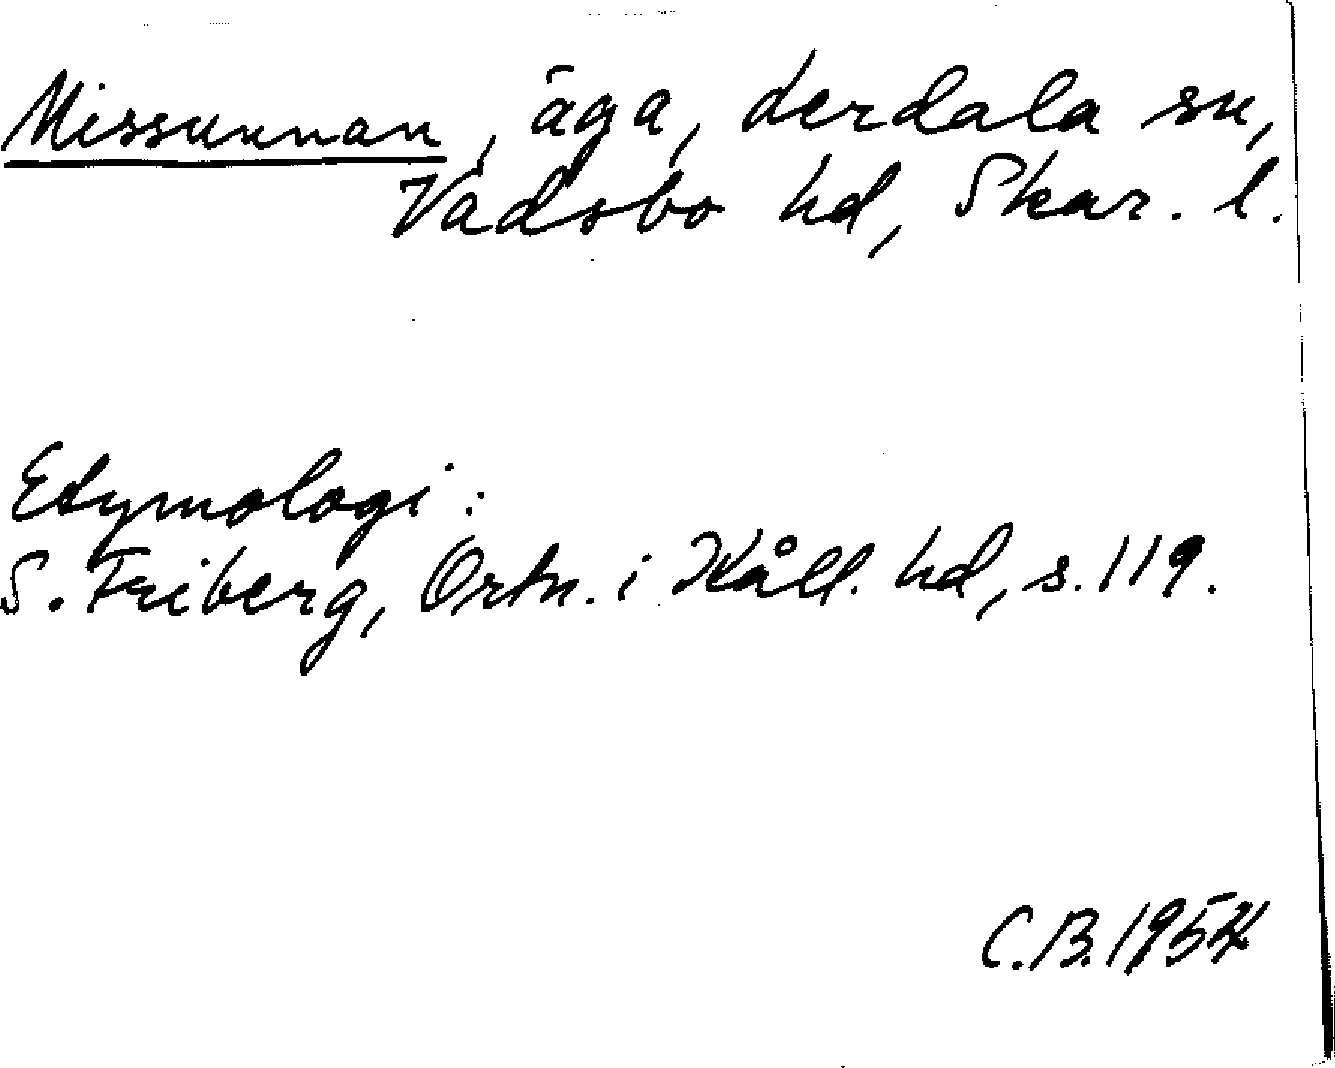 Missunnan, äga, Lerdala sn,
Vadsbo hd, Skar. l.
Etymologi:
S. Friberg, Ortn. i Kåll. hd, s. 119.
C.B. 1954